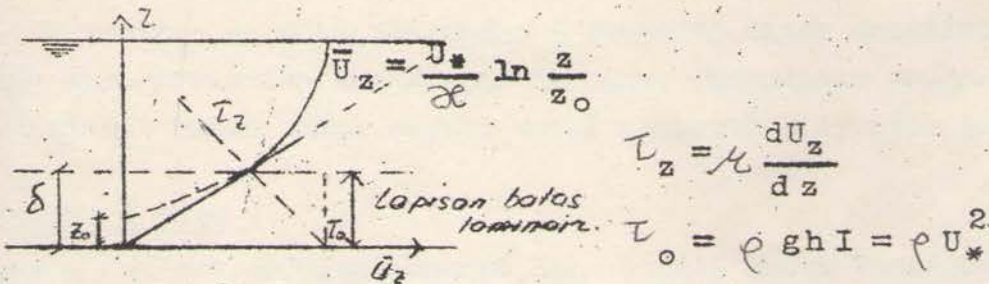 Z
Ū_z = U_* / ϰ ln z / z_o
τ_z
τ_z = μ dU_z / dz
δ
z_o
τ_o
Lapisan batas
laminair.
τ_o = ρ g h I = ρ U_*^2
Ū_z